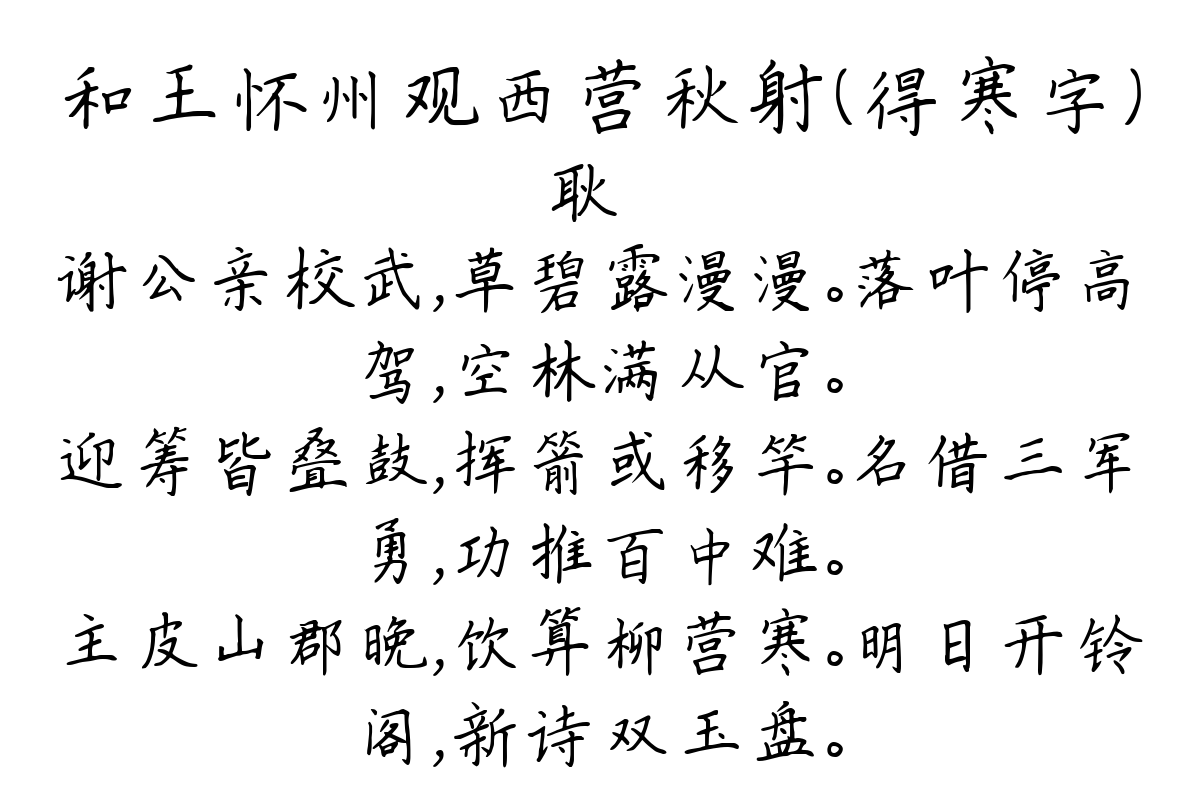 和王怀州观西营秋射(得寒字)
耿
谢公亲校武,草碧露漫漫。落叶停高
驾,空林满从官。
迎筹皆叠鼓,挥箭或移竿。名借三军
勇,功推百中难。
主皮山郡晚,饮算柳营寒。明日开铃
阁,新诗双玉盘。